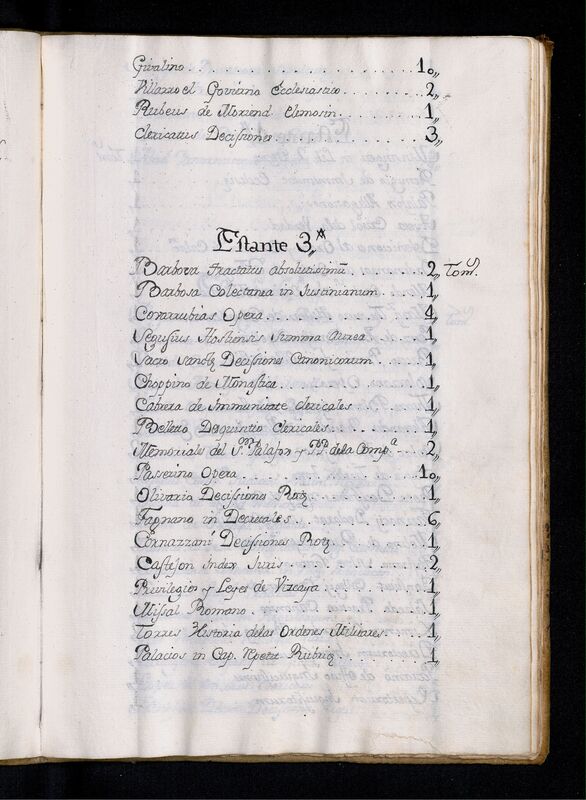 Givalino . . . . . . . . . . . . . . . . . . . . . 10,,
Villarroel Govierno Ecclesiastico . . . . . . . 2,,
Rubeus de Moriend Elemosin . . . . . . . . 1,,
Clericatus Decissiones . . . . . . . . . . . . . 3,,
Estante 3,,
Barbora tractatus absolutisimũ 2,, Toms.
Barbosa Colectanea in Justinianum . . . . 1,,
Covarrubias Opera . . . . . . . . . . . . . . . 4,,
Segusius Hostiensis Summa Aurea . . . . . 1,,
Sacro Sanctæ Decisiones Canonicorum . . . . 1,,
Choppino de Monastica . . . . . . . . . . . . 1,,
Cabrera de immunitate clericales . . . . . . 1,,
Belletto Disquintio Clericales . . . . . . . . . 1,,
Memoriales del Sr. Palafox y PP. de la Compa. . . 2,,
Passerino Opera . . . . . . . . . . . . . . . . . 10,,
Olivaria Decissiones Rotæ . . . . . . . . . . . 1,,
Fagnano in Decretales . . . . . . . . . . . . . 6,,
Cornazzani Decissiones Rotæ . . . . . . . . . 1,,
Castejon Index Juris . . . . . . . . . . . . . . 2,,
Privilegios y Leyes de Vizcaya . . . . . . . . 1,,
Missal Romano . . . . . . . . . . . . . . . . . . 1,,
Torres Historia delas Ordenes Militares . . . 1,,
Palacios in Cap. Repetit Rubricæ . . . . . . . 1,,